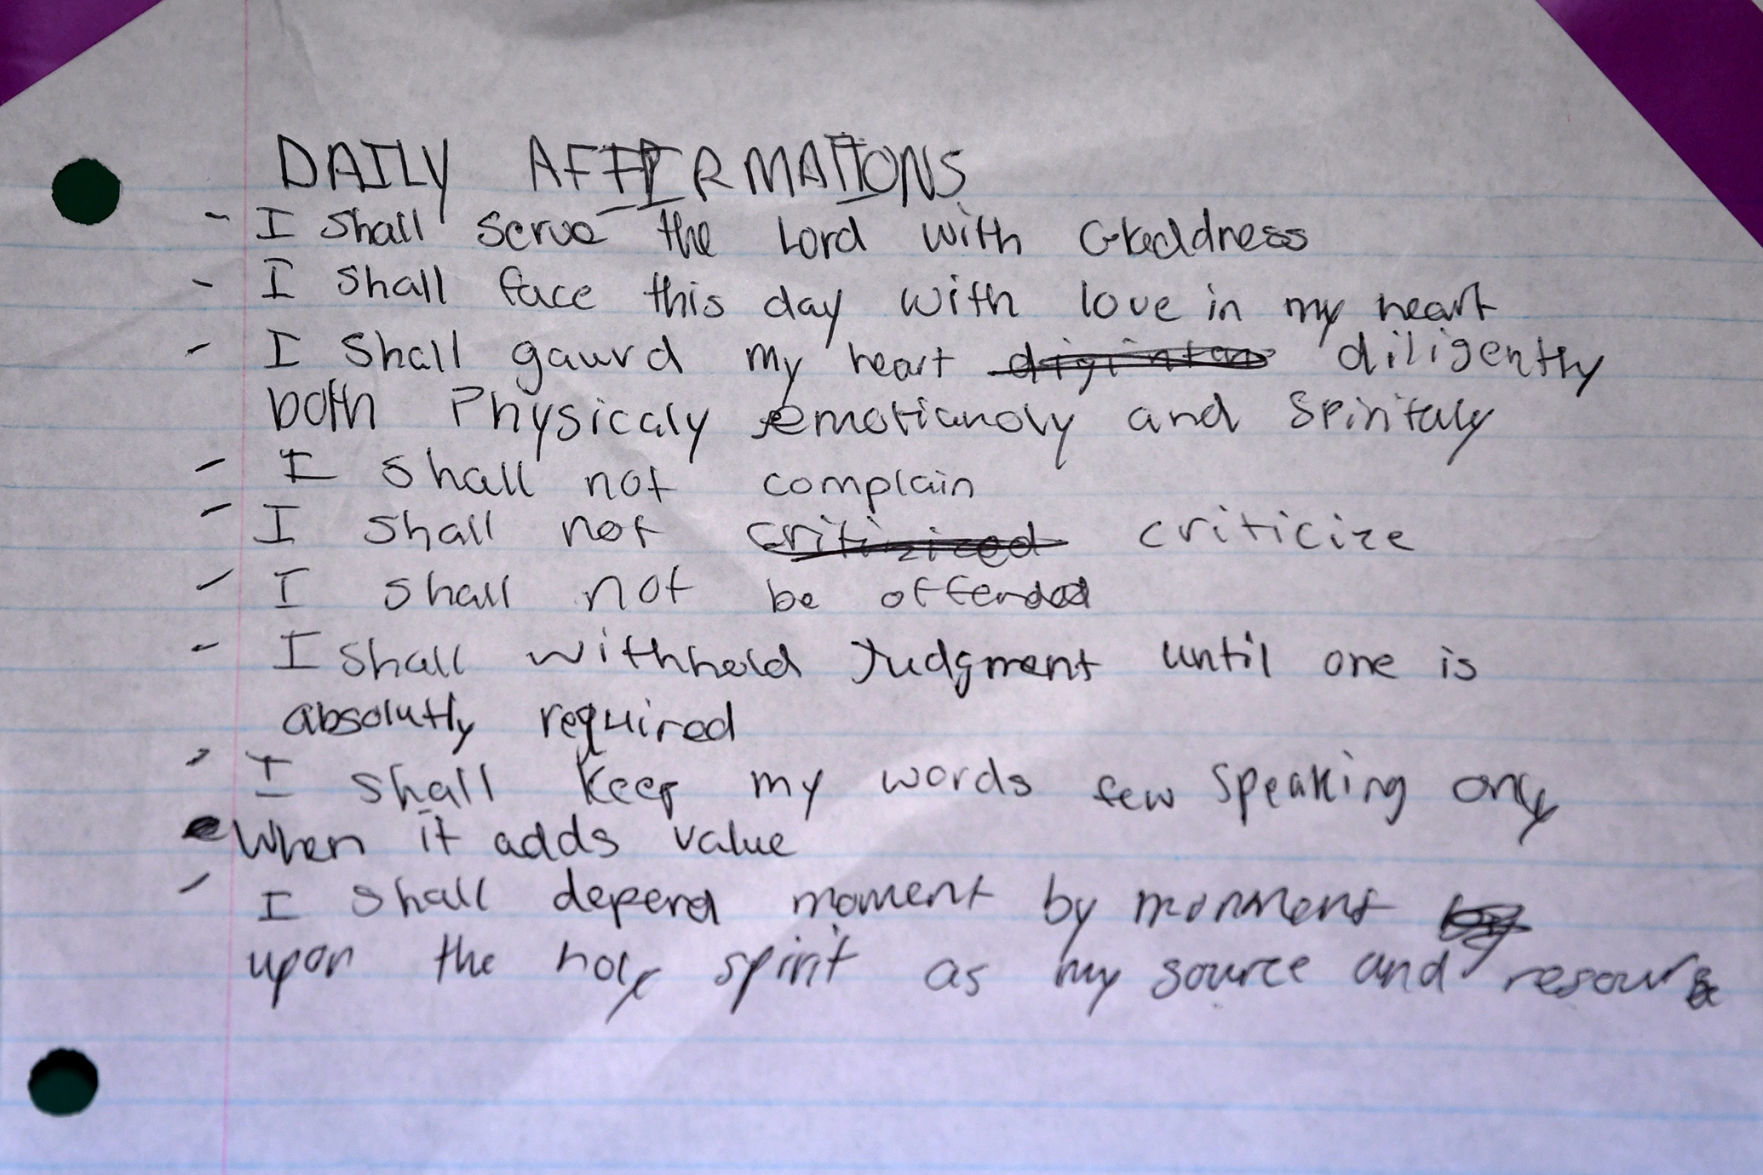 DAILY AFFIRMATIONS
- I shall serve the Lord with Gladdness
- I shall face this day with love in my heart
- I shall gaurd my heart diligently
both Physicaly emotianoly and Spiritaly
- I shall not complain
- I shall not critizized criticize
- I shall not be offended
- I shall withhold Judgment until one is
absolutly required
- I shall keep my words few speaking only
when it adds value
- I shall depend moment by monment
upon the holy spirit as my source and